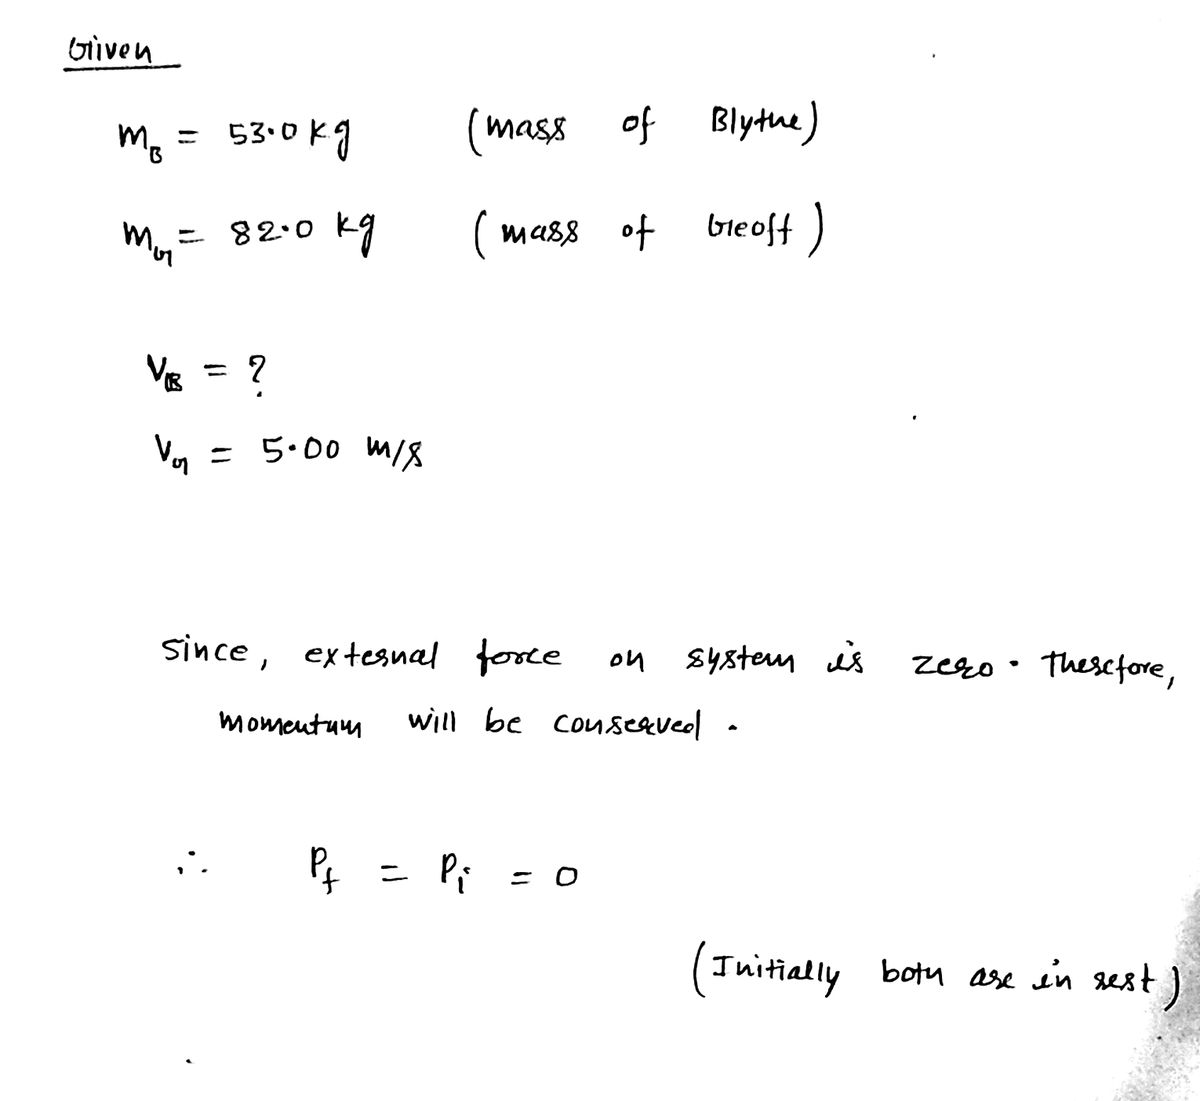 Given
m_B = 53.0 kg (mass of Blythe)
m_G = 82.0 kg (mass of Geoff)
V_B = ?
V_G = 5.00 m/s
Since, external force on system is zero. Therefore,
momentum will be conserved.
∴ P_f = P_i = 0
(Initially both are in rest)